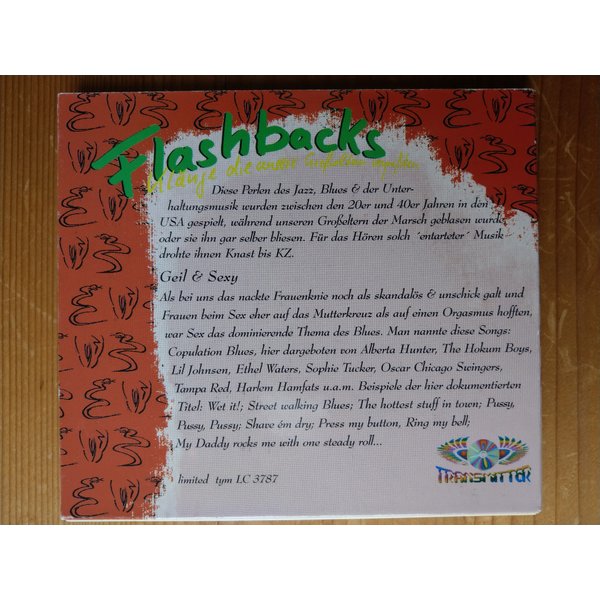 Flashbacks
Klänge die unsere Großeltern
Diese Perlen des Jazz, Blues & der Unter-
haltungsmusik wurden zwischen den 20er und 40er Jahren in den
USA gespielt, während unseren Großeltern der Marsch geblasen wurde
oder sie ihn gar selber bliesen. Für das Hören solch ´entarteter´ Musik
drohte ihnen Knast bis KZ.
Geil & Sexy
Als bei uns das nackte Frauenknie noch als skandalös & unschick galt und
Frauen beim Sex eher auf das Mutterkreuz als auf einen Orgasmus hofften,
war Sex das dominierende Thema des Blues. Man nannte diese Songs:
Copulation Blues, hier dargeboten von Alberta Hunter, The Hokum Boys,
Lil Johnsen, Ethel Waters, Sophie Tucker, Oscar Chicago Swingers,
Tampa Red, Harlem Hamfats u.a.m. Beispiele der hier dokumentierten
Titel: Wet it!; Street walking Blues; The hottest stuff in town; Pussy,
Pussy, Pussy; Shave ém dry; Press my button, Ring my bell;
My Daddy rocks me with one steady roll...
limited tym LC 3787
TRANSMITTER